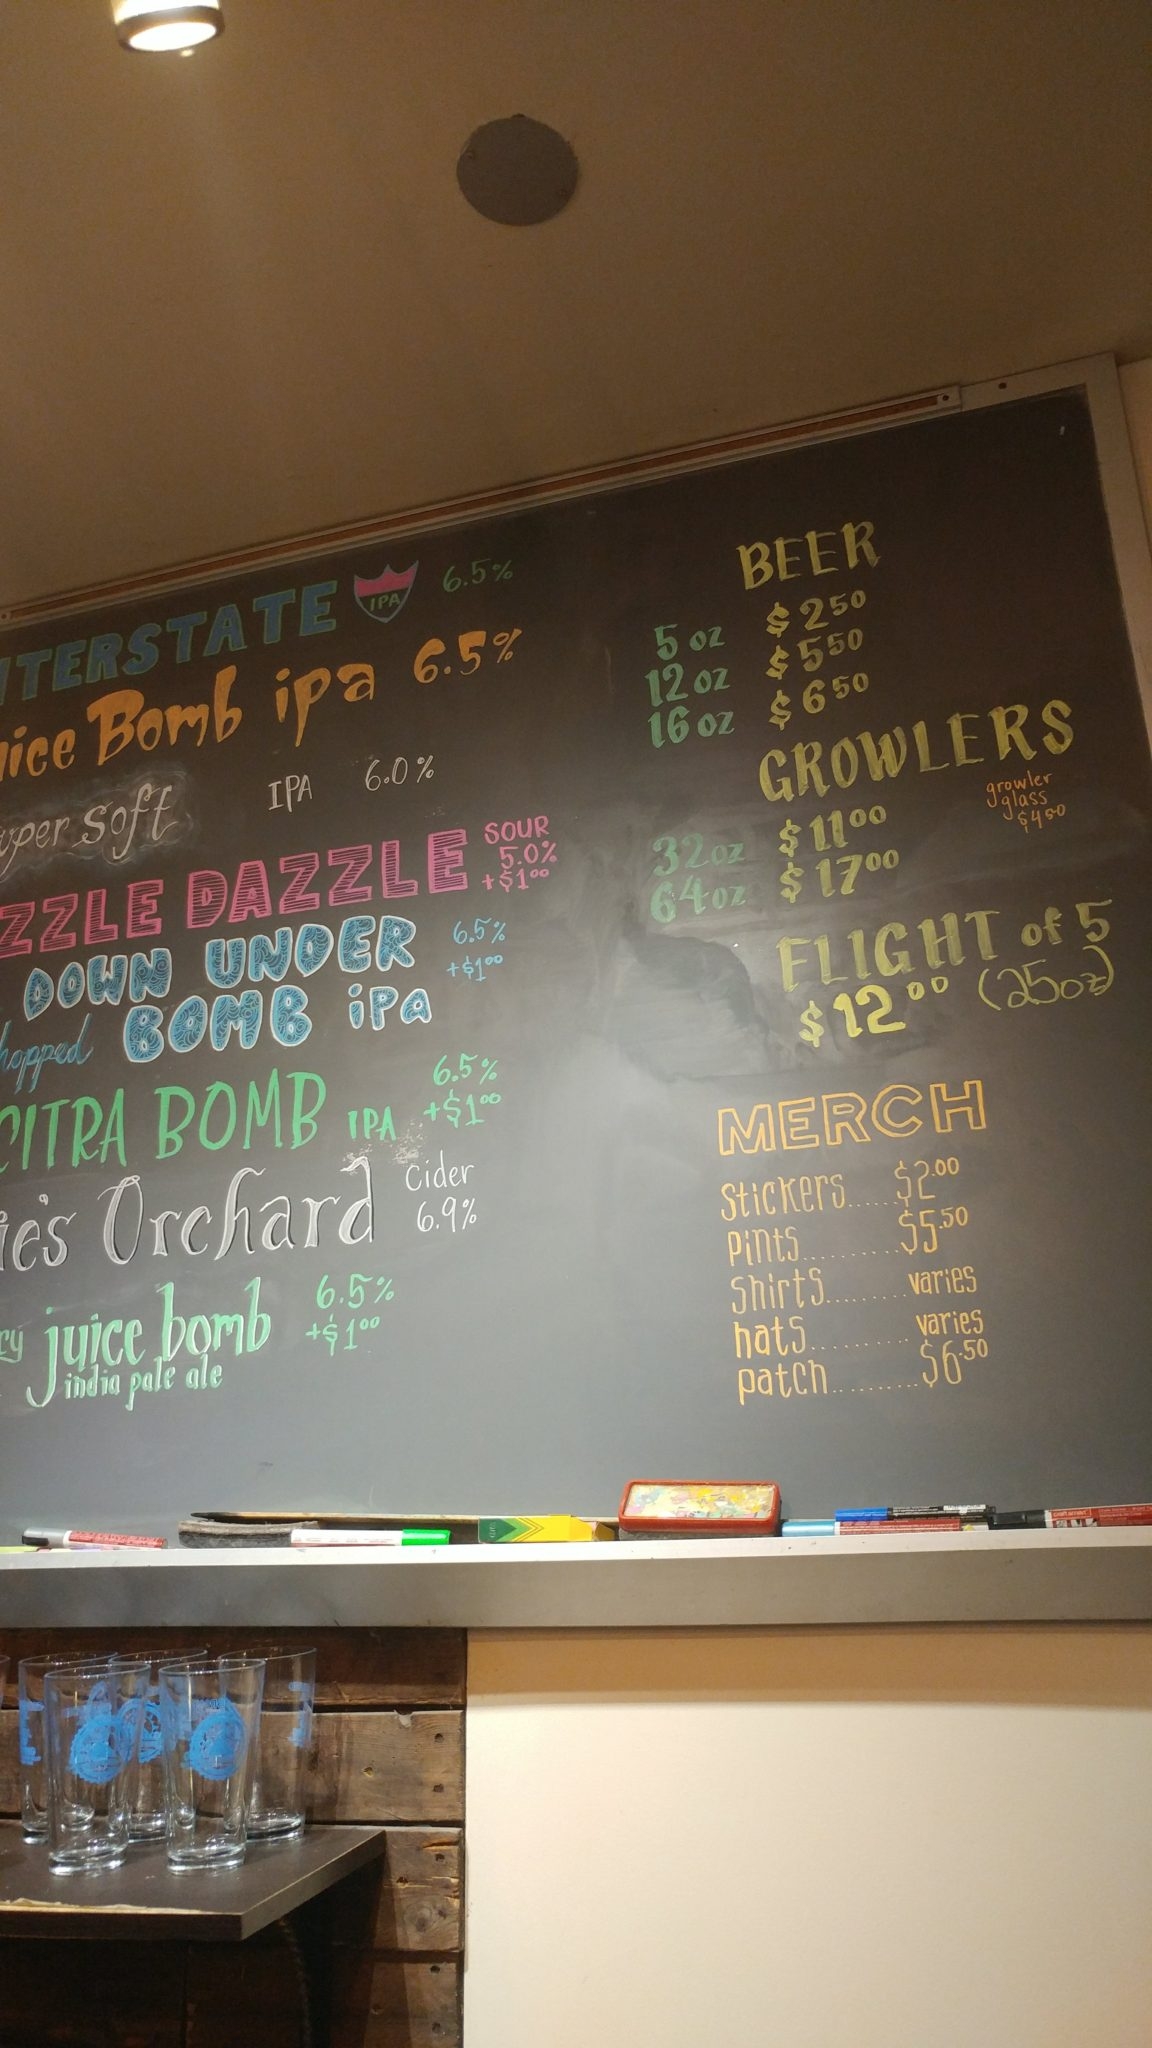 INTERSTATE IPA 6.5%
Juice Bomb ipa 6.5%
super soft IPA 6.0%
ZZLE DAZZLE SOUR
5.0%
+$1.00
DOWN UNDER 6.5%
+$1.00
hopped BOMB iPA
CITRA BOMB IPA 6.5%
+$1.00
ie's Orchard Cider
6.9%
ry juice bomb 6.5%
+$1.00
india pale ale
BEER
5 oz $2.50
12 oz $5.50
16 oz $6.50
GROWLERS
growler
glass
$4.50
32oz $11.00
64oz $17.00
FLIGHT of 5
$12.00 (25oz)
MERCH
stickers......$2.00
pints..........$5.50
shirts.........varies
hats...........varies
patch..........$6.50